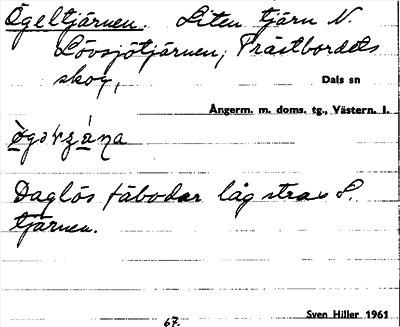 Ögeltjärnen. Liten tjärn N.
Lövsjötjärnen, Prästbordets
skog,
Dals sn
Ångerm. m. doms. tg., Västern. l.
Daglös fäbodar låg strax S.
tjärnen.
67.
Sven Hiller 1961